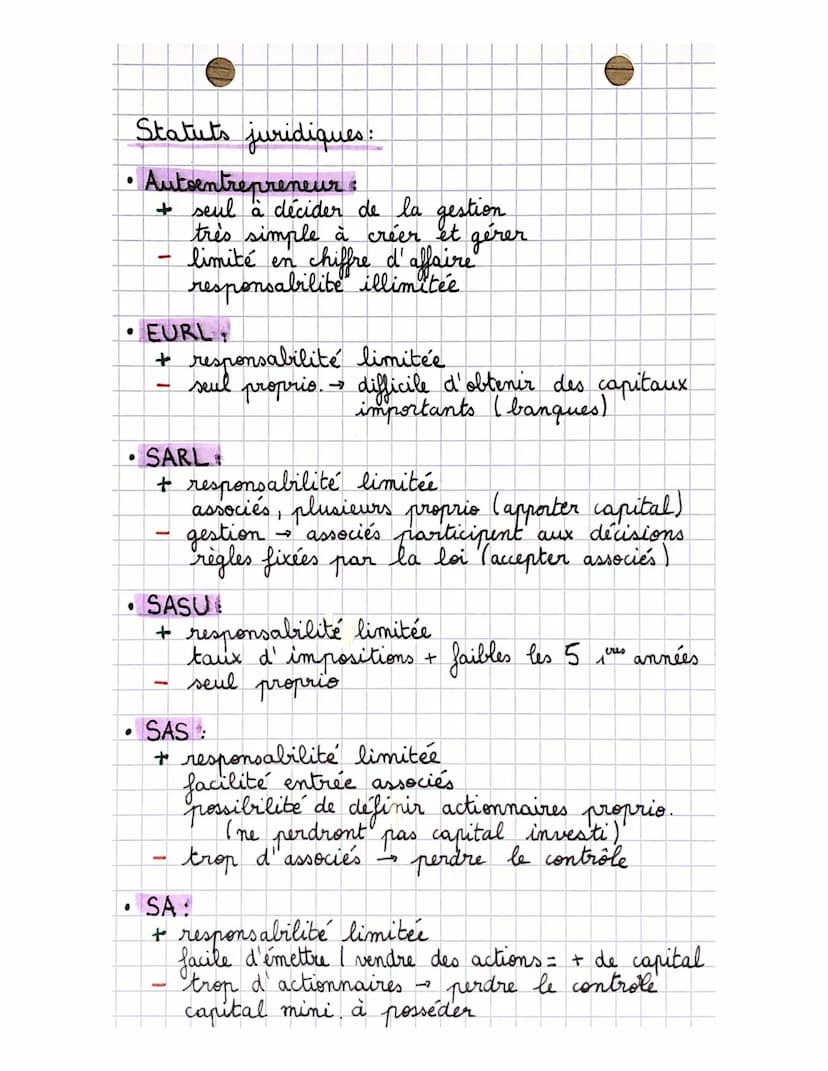 Statuts juridiques :
• Autoentrepreneur :
+ seul à décider de la gestion
très simple à créer et gérer
- limité en chiffre d'affaire
responsabilité illimitée
• EURL :
+ responsabilité limitée
- seul proprio. → difficile d'obtenir des capitaux
importants (banques)
• SARL :
+ responsabilité limitée
associés, plusieurs proprio (apporter capital)
- gestion → associés participent aux décisions
règles fixées par la loi (accepter associés)
• SASU :
+ responsabilité limitée
taux d'impositions + faibles les 5 1ères années
- seul proprio
• SAS :
+ responsabilité limitée
facilité entrée associés
possibilité de définir actionnaires proprio.
(ne perdront pas capital investi)
- trop d'associés → perdre le contrôle
• SA :
+ responsabilité limitée
facile d'émettre / vendre des actions = + de capital
- trop d'actionnaires → perdre le contrôle
capital mini. à posséder